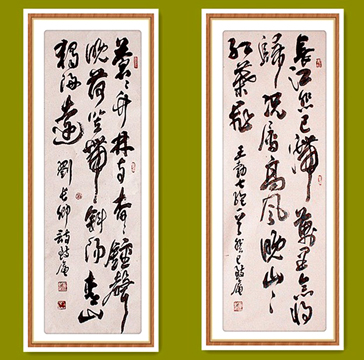 長江悲已滯萬里念將
歸況屬高風晚山々
葉飛
王勃
蒼々竹林寺杳々鐘聲
晚荷笠帶斜陽青山
獨歸遠
劉長卿詩